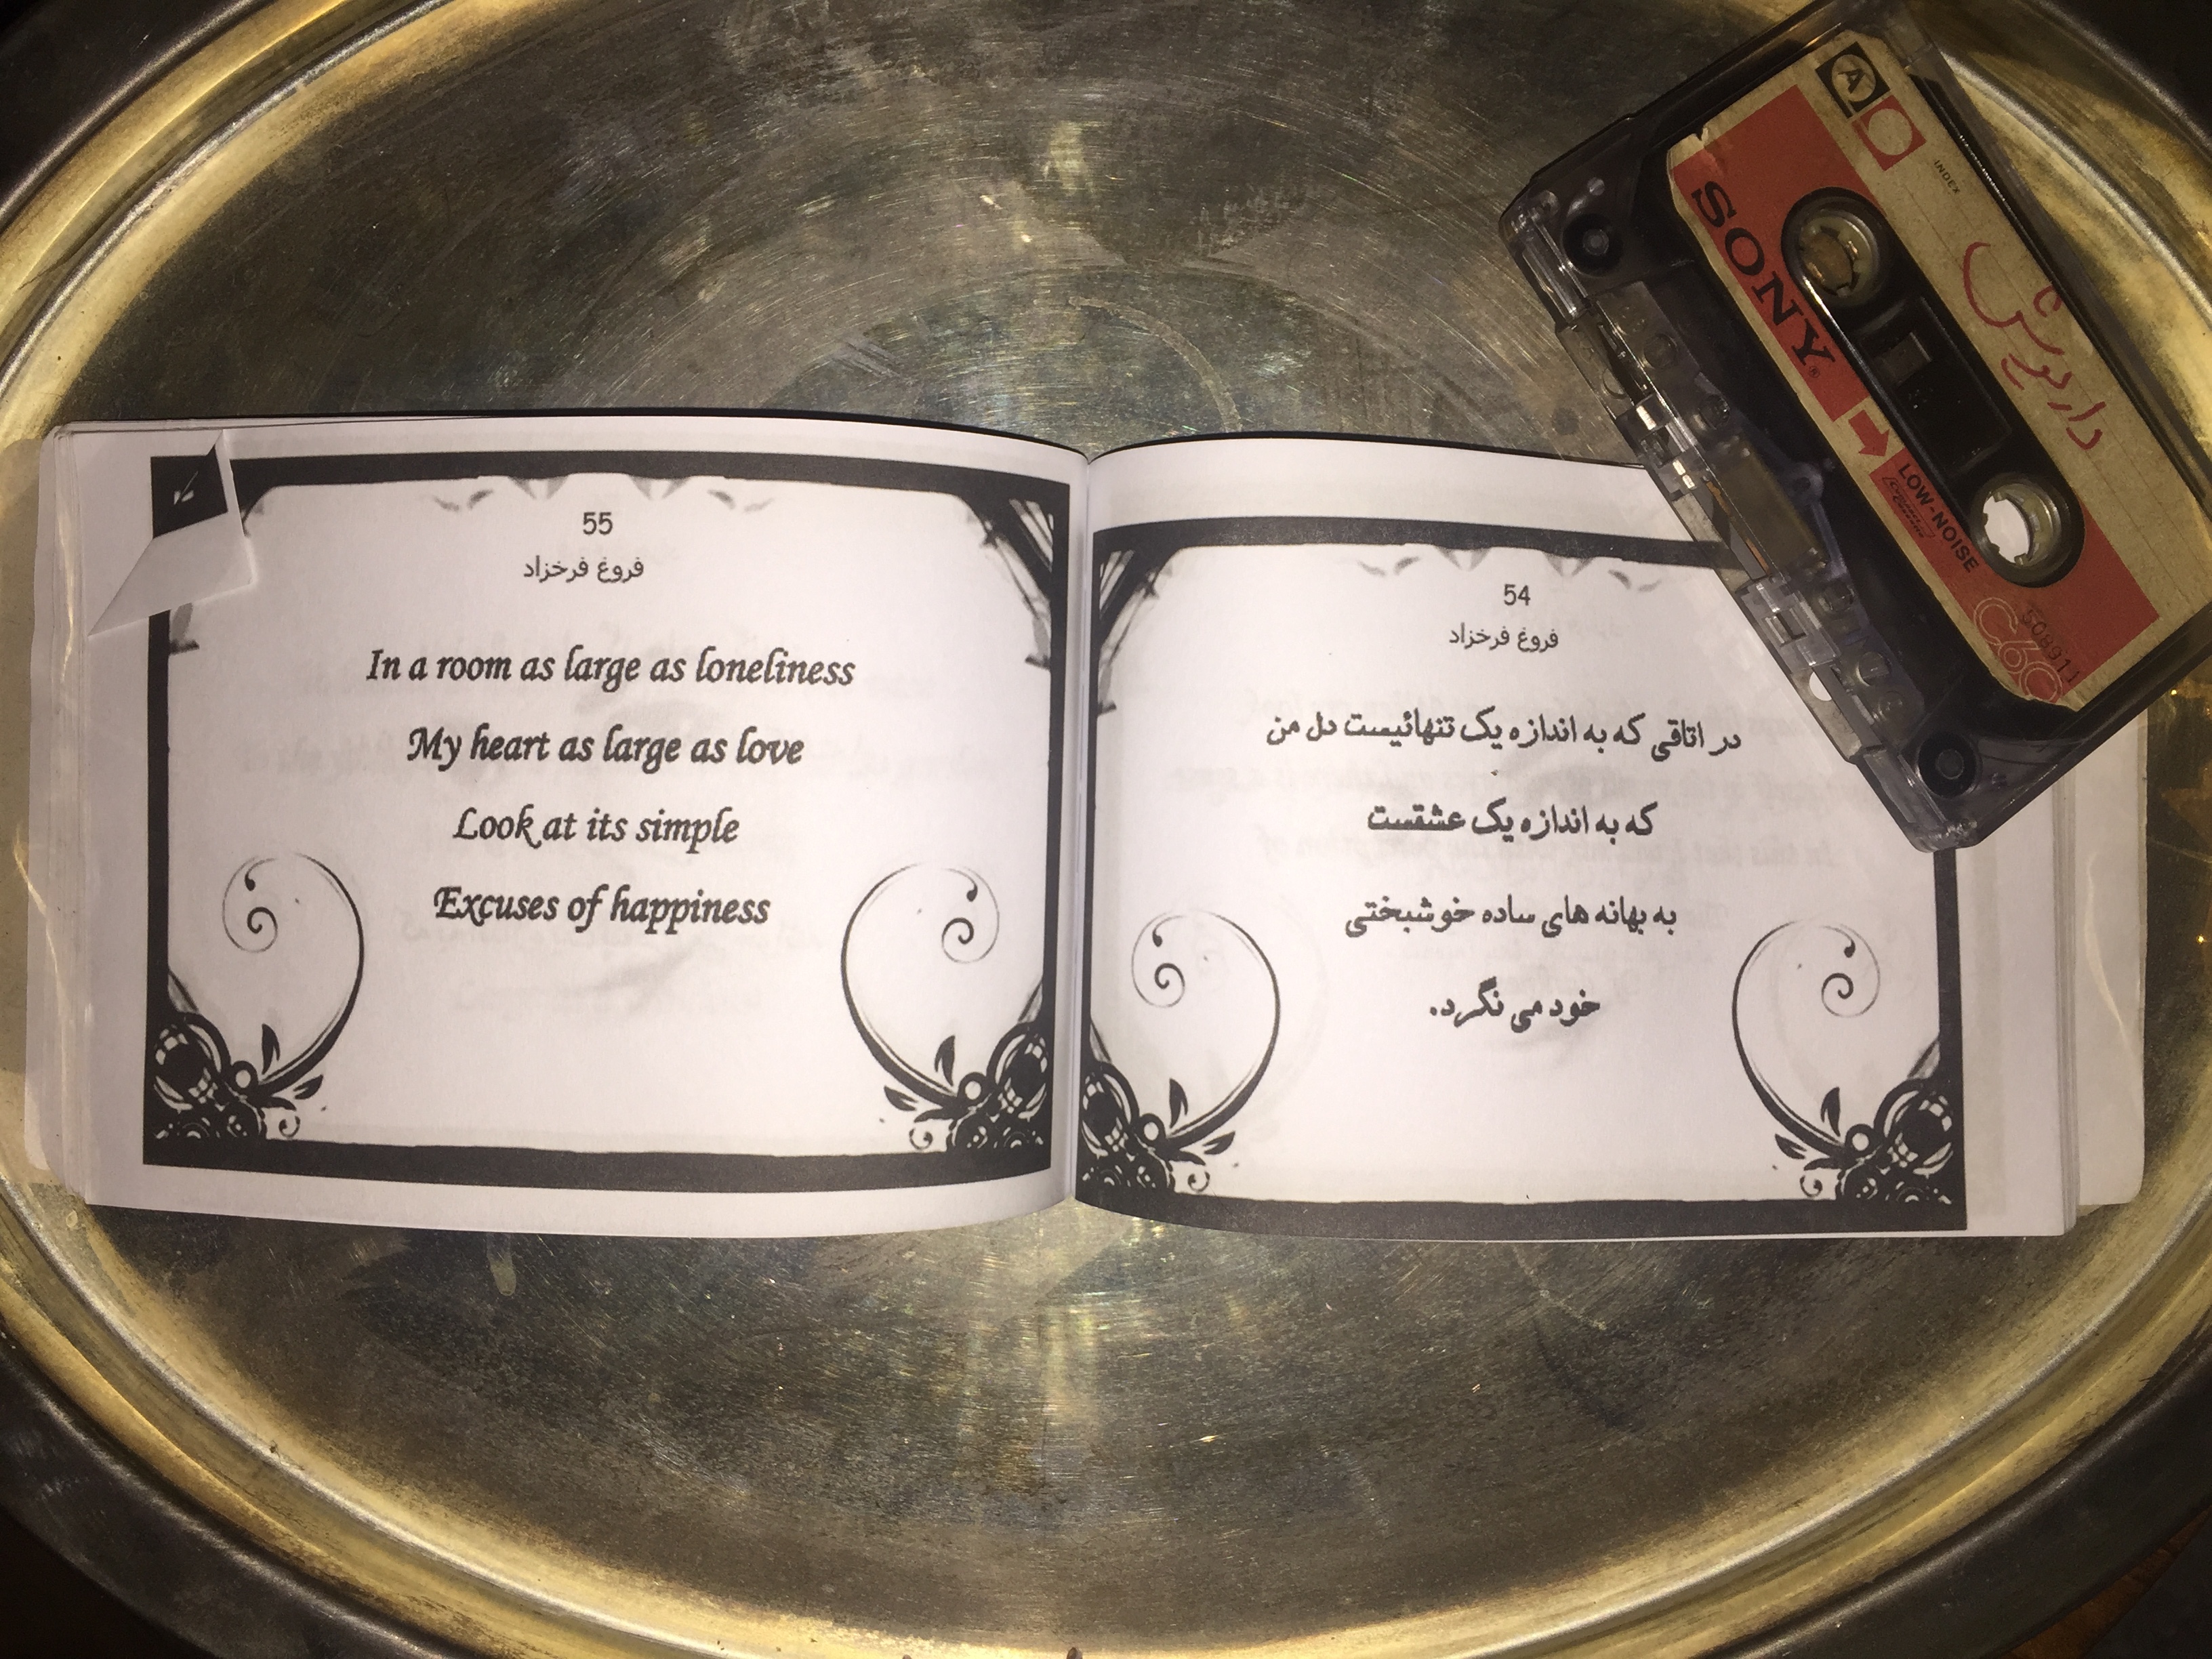 55
فروغ فرخزاد
In a room as large as loneliness
My heart as large as love
Look at its simple
Excuses of happiness
54
فروغ فرخزاد
در اتاقی که به اندازه یک تنهائیست دل من
که به اندازه یک عشقست
به بهانه های ساده خوشبختی
خود می نگرد.
A
INDEX
داریوش
SONY®
LOW-NOISE
C60